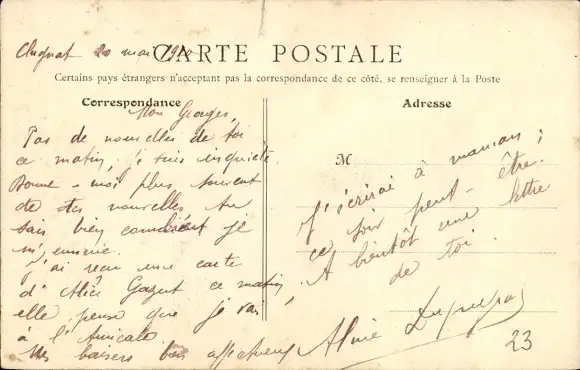 Clugnat 20 mai 1910
CARTE POSTALE
Certains pays étrangers n'acceptant pas la correspondance de ce côté, se renseigner à la Poste
Correspondance
Adresse
Mon Georges,
Pas de nouvelles de toi
ce matin. Je suis inquiète
Donne-moi plus souvent
de tes nouvelles. Tu
sais bien combien je
m'ennuie.
J'ai reçu une carte
d'Alice ce matin,
elle pense que je vais
à l'Amicale.
Mes baisers bien affectueux
M
J'écrirai à maman;
ce soir peut-être.
A bientôt une lettre
de toi.
Aline
23